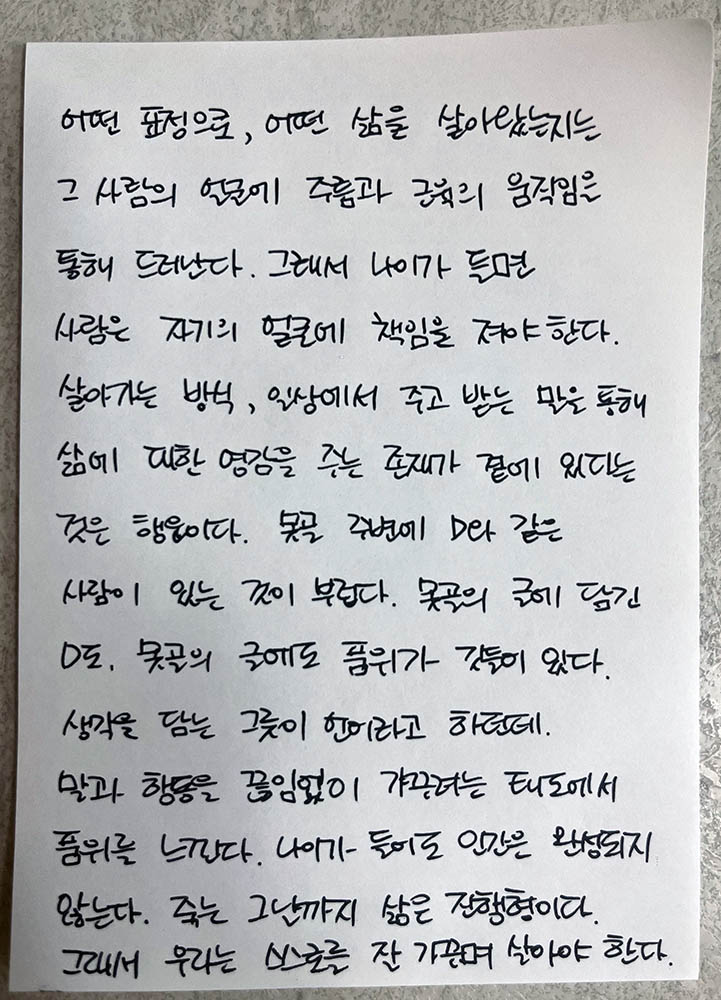 어떤 표정으로, 어떤 삶을 살아왔는지는
그 사람의 얼굴에 주름과 근육의 움직임을
통해 드러난다. 그래서 나이가 들면
사람은 자기의 얼굴에 책임을 져야 한다.
살아가는 방식, 일상에서 주고 받는 말을 통해
삶에 대한 영감을 주는 존재가 곁에 있다는
것은 행운이다. 못골 주변에 D와 같은
사람이 있는 것이 부럽다. 못골의 글에 담긴
D도, 못골의 글에도 품위가 깃들어 있다.
생각을 담는 그릇이 언어라고 하던데.
말과 행동을 끊임없이 가꾸려는 태도에서
품위를 느낀다. 나이가 들어도 인간은 완성되지
않는다. 죽는 그날까지 삶은 진행형이다.
그래서 우리는 스스로를 잘 가꾸며 살아야 한다.